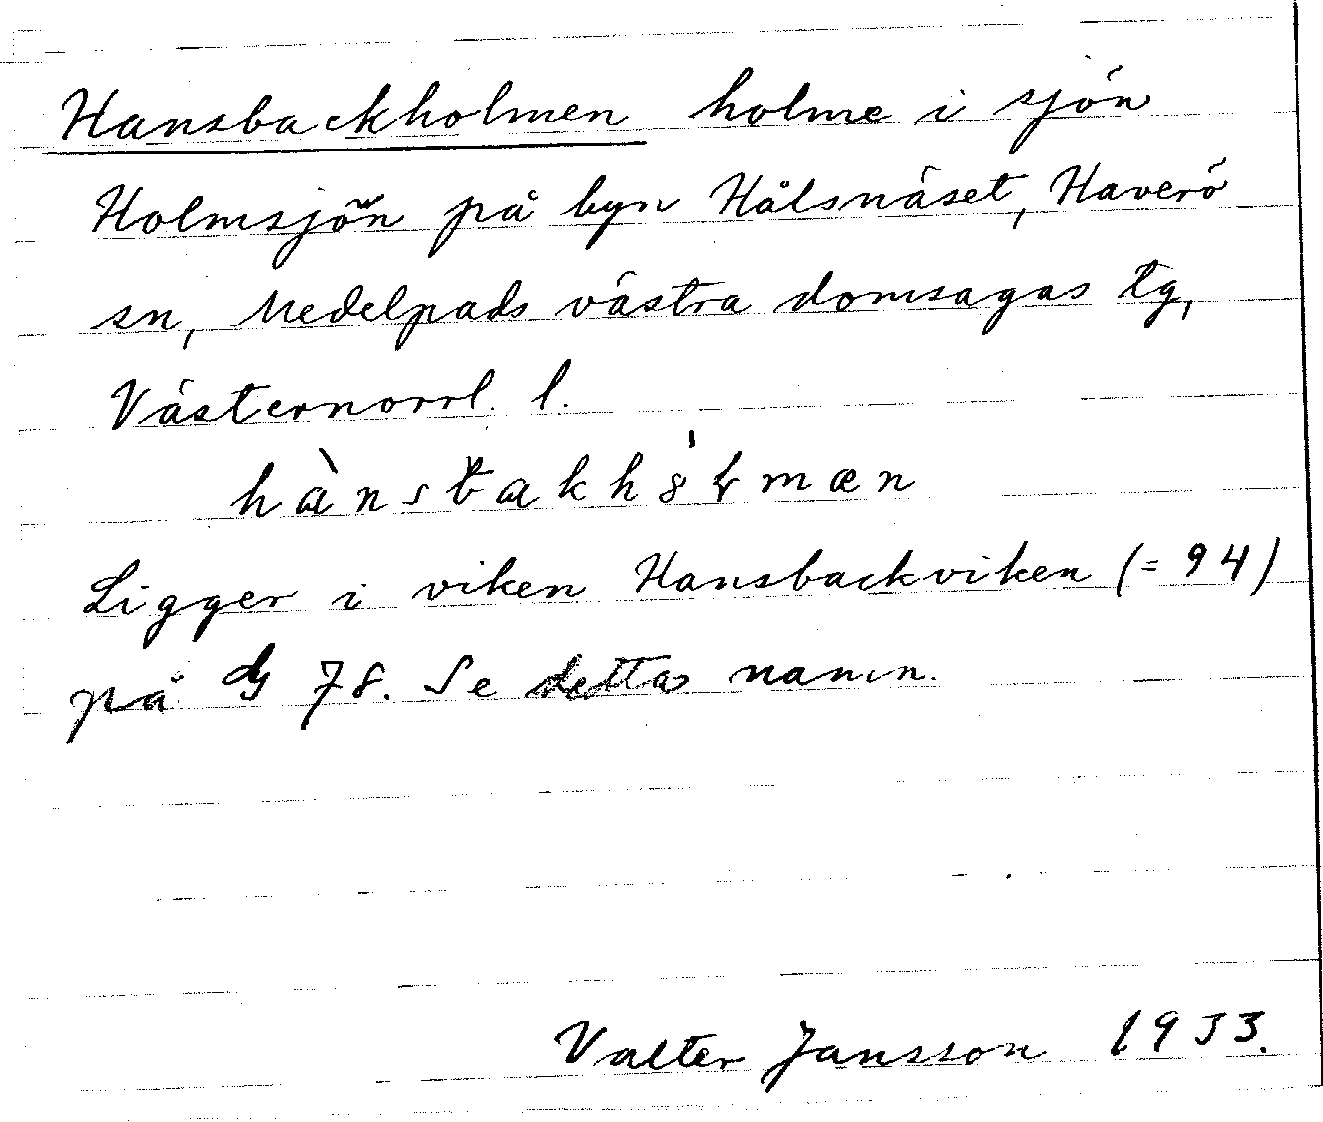 Hansbackholmen holme i sjön
Holmsjön på byn Hålsnäset, Haverö
sn, Medelpads västra domsagas tg,
Västernorrl. l.
Ligger i viken Hansbackviken (= 94)
på 78. Se detta namn.
Valter Jansson 1933.